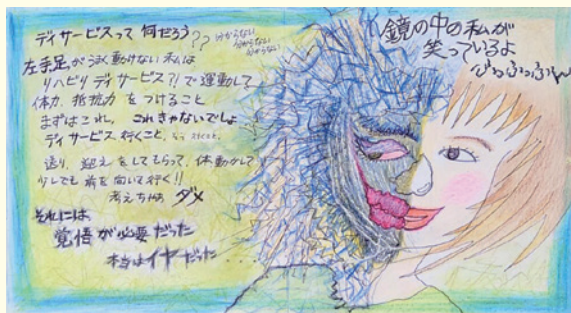 ディサービスって 何だろう??
分からない
分からない
分からない
左手足がうまく動けない私は
リハビリディサービス?!で運動して
体力、抵抗力をつけること
まずはこれ。これきゃないでしょ
ディサービス行くこと。
送り、迎えをしてもらって、体動かして
少しでも前を向いて行く!!
考えちゃあ ダメ
それには
覚悟が必要だった
本当はイヤだった...
鏡の中の私が
笑っているよ